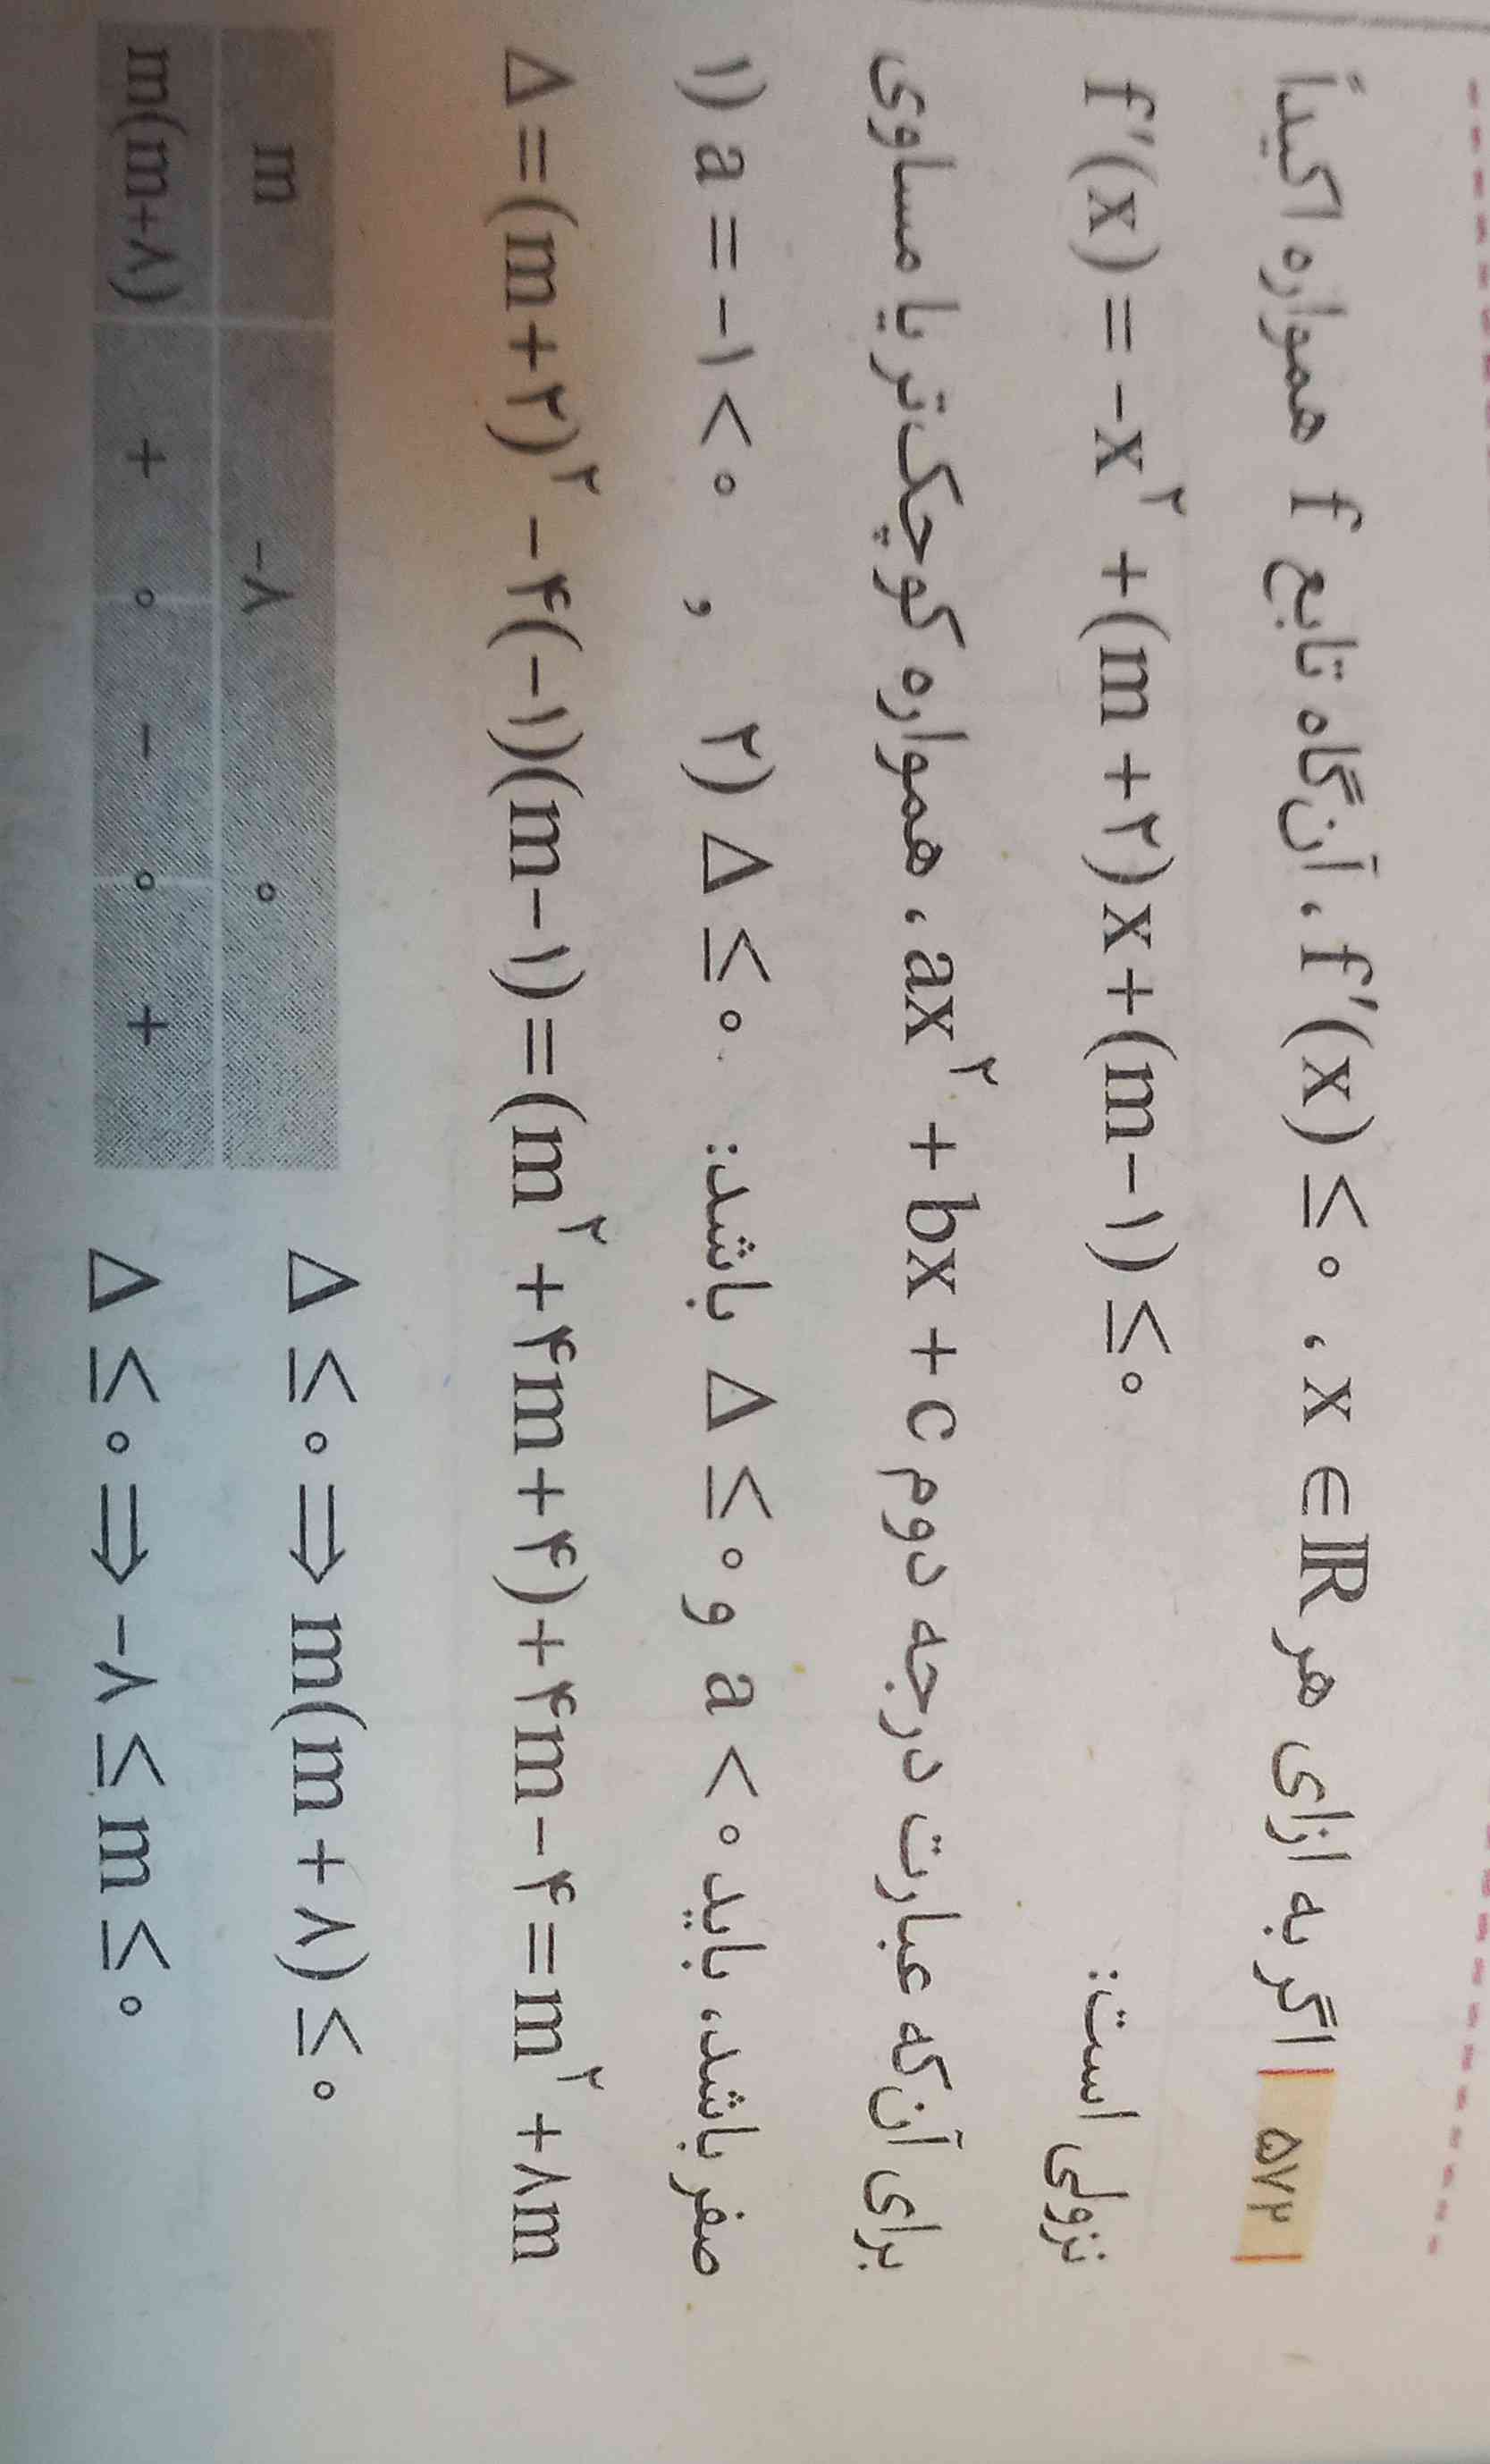 | ۵۷۲ | اگر به ازای هر x ∈ ℝ، f′(x) ≤ ۰، آن‌گاه تابع f همواره اکیداً
نزولی است:
f′(x) = −x² + (m + ۲)x + (m − ۱) ≤ ۰
برای آن‌که عبارت درجه دوم ax² + bx + c، همواره کوچک‌تر یا مساوی
صفر باشد، باید a < ۰ و Δ ≤ ۰ باشد:
۱) a = −۱ < ۰ , ۲) Δ ≤ ۰
Δ = (m + ۲)² − ۴(−۱)(m − ۱) = (m² + ۴m + ۴) + ۴m − ۴ = m² + ۸m
m −۸ ۰
m(m+۸) + ۰ − ۰ +
Δ ≤ ۰ ⇒ m(m + ۸) ≤ ۰
Δ ≤ ۰ ⇒ −۸ ≤ m ≤ ۰